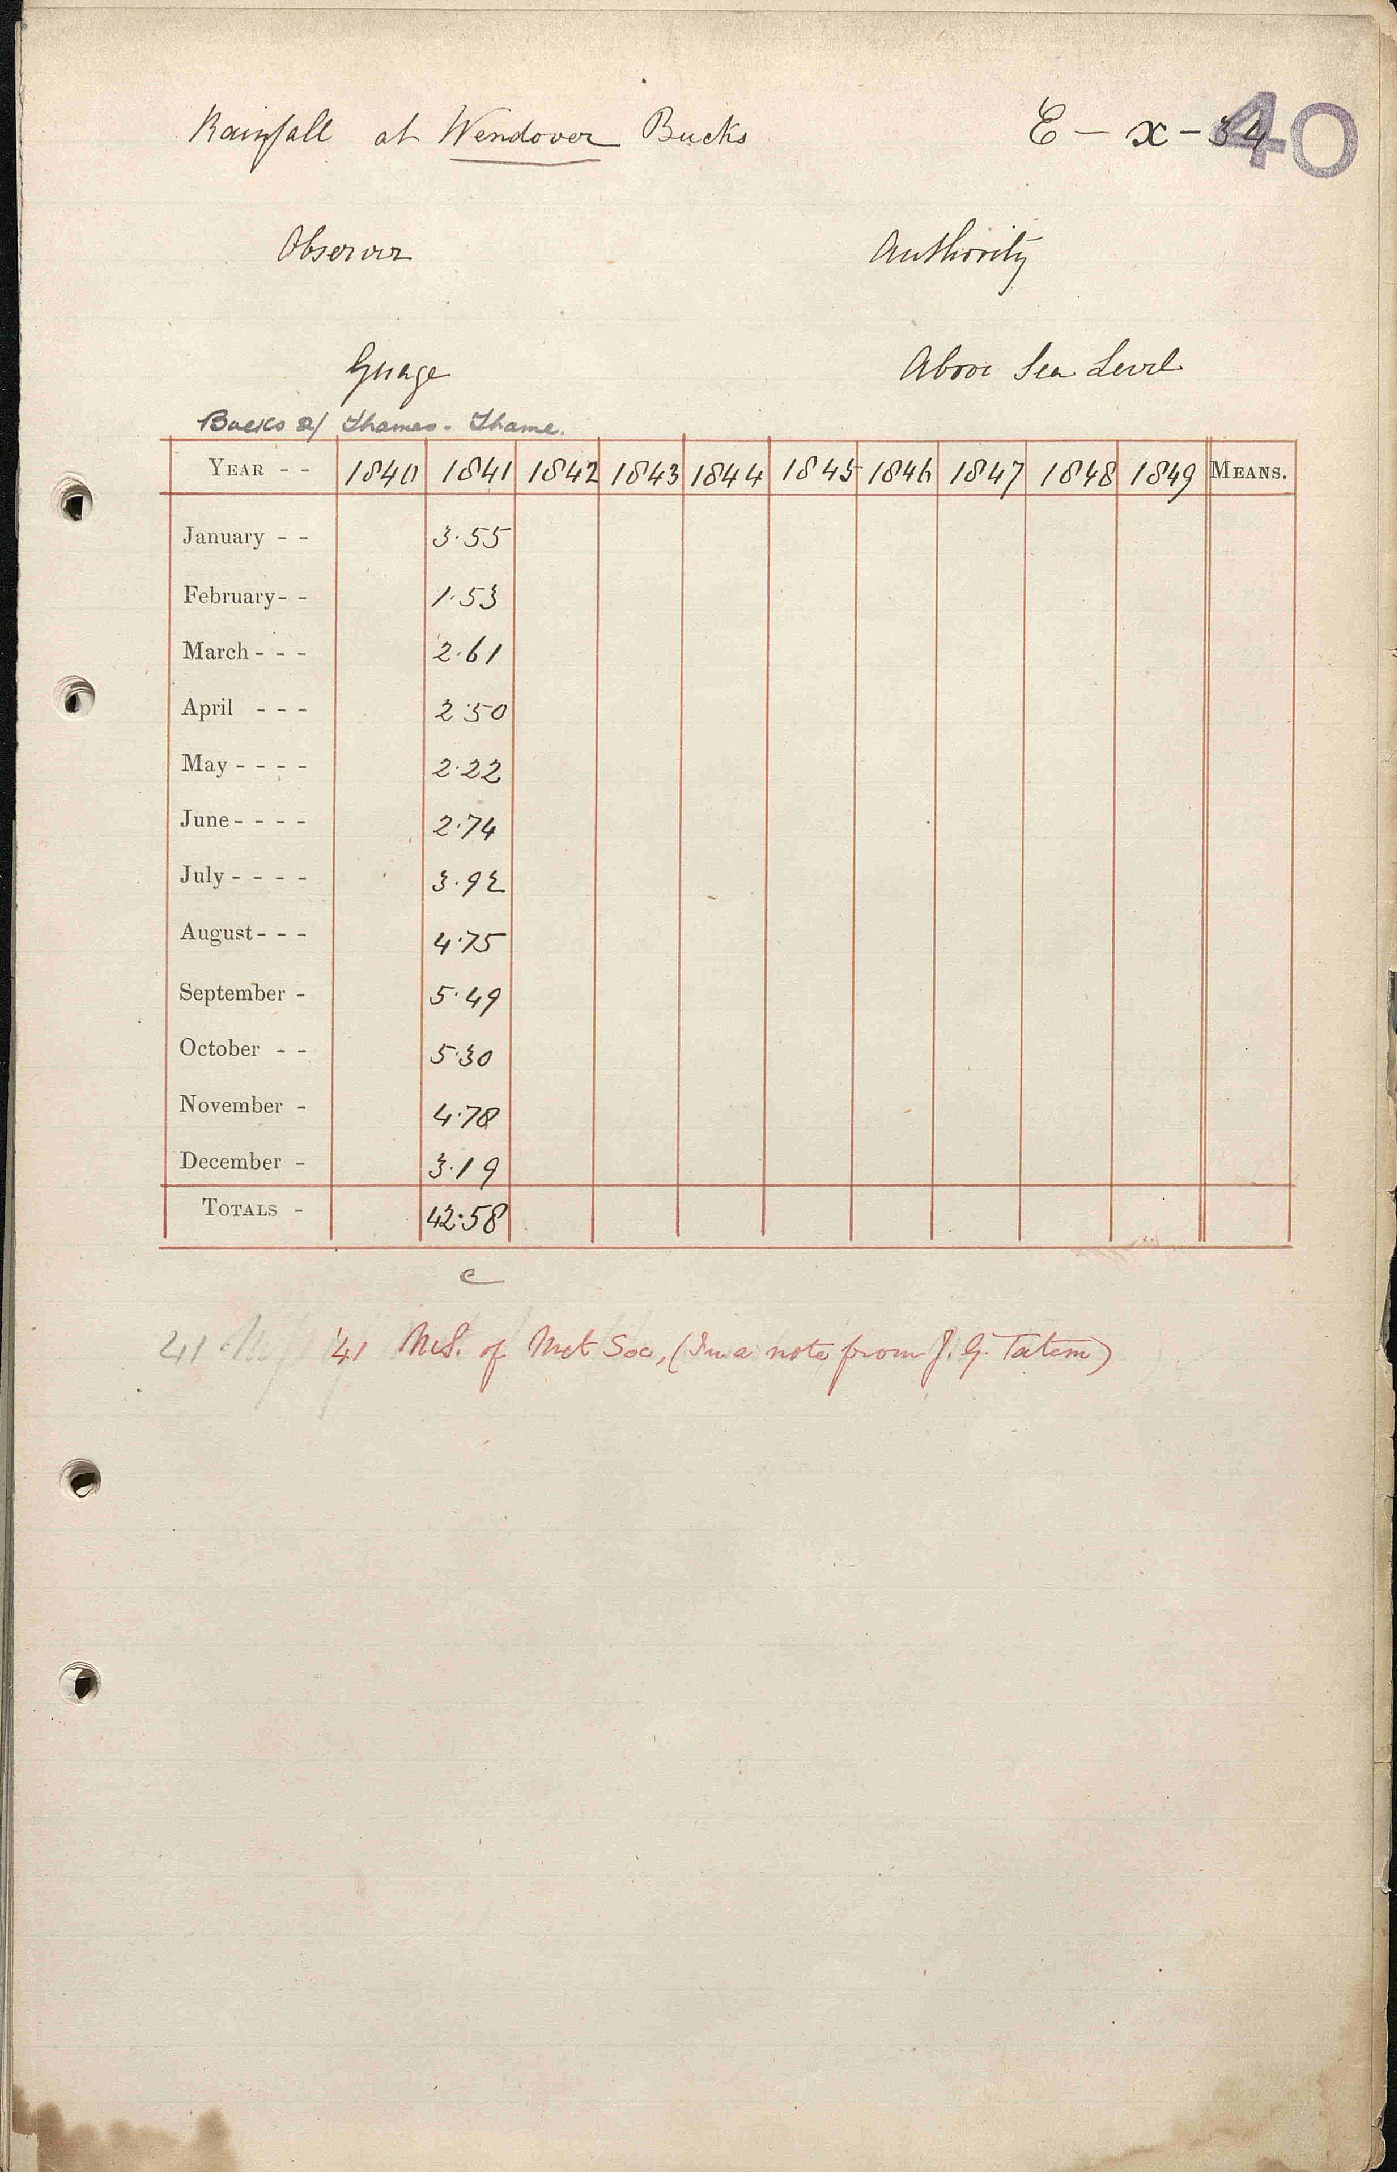 Rainfall at Wendover Bucks E - x - 34 40
Observer Authority
Guage Above Sea Level
Bucks 2/ Thames - Thame.
YEAR - - 1840 1841 1842 1843 1844 1845 1846 1847 1848 1849 MEANS.
January - - 3.55
February - - 1.53
March - - - 2.61
April - - - 2.50
May - - - - 2.22
June - - - - 2.74
July - - - - 3.92
August - - - 4.75
September - 5.49
October - - 5.30
November - 4.78
December - 3.19
TOTALS - 42.58
c
41 '41 M.S. of Met Soc, (In a note from J. G. Tatem)